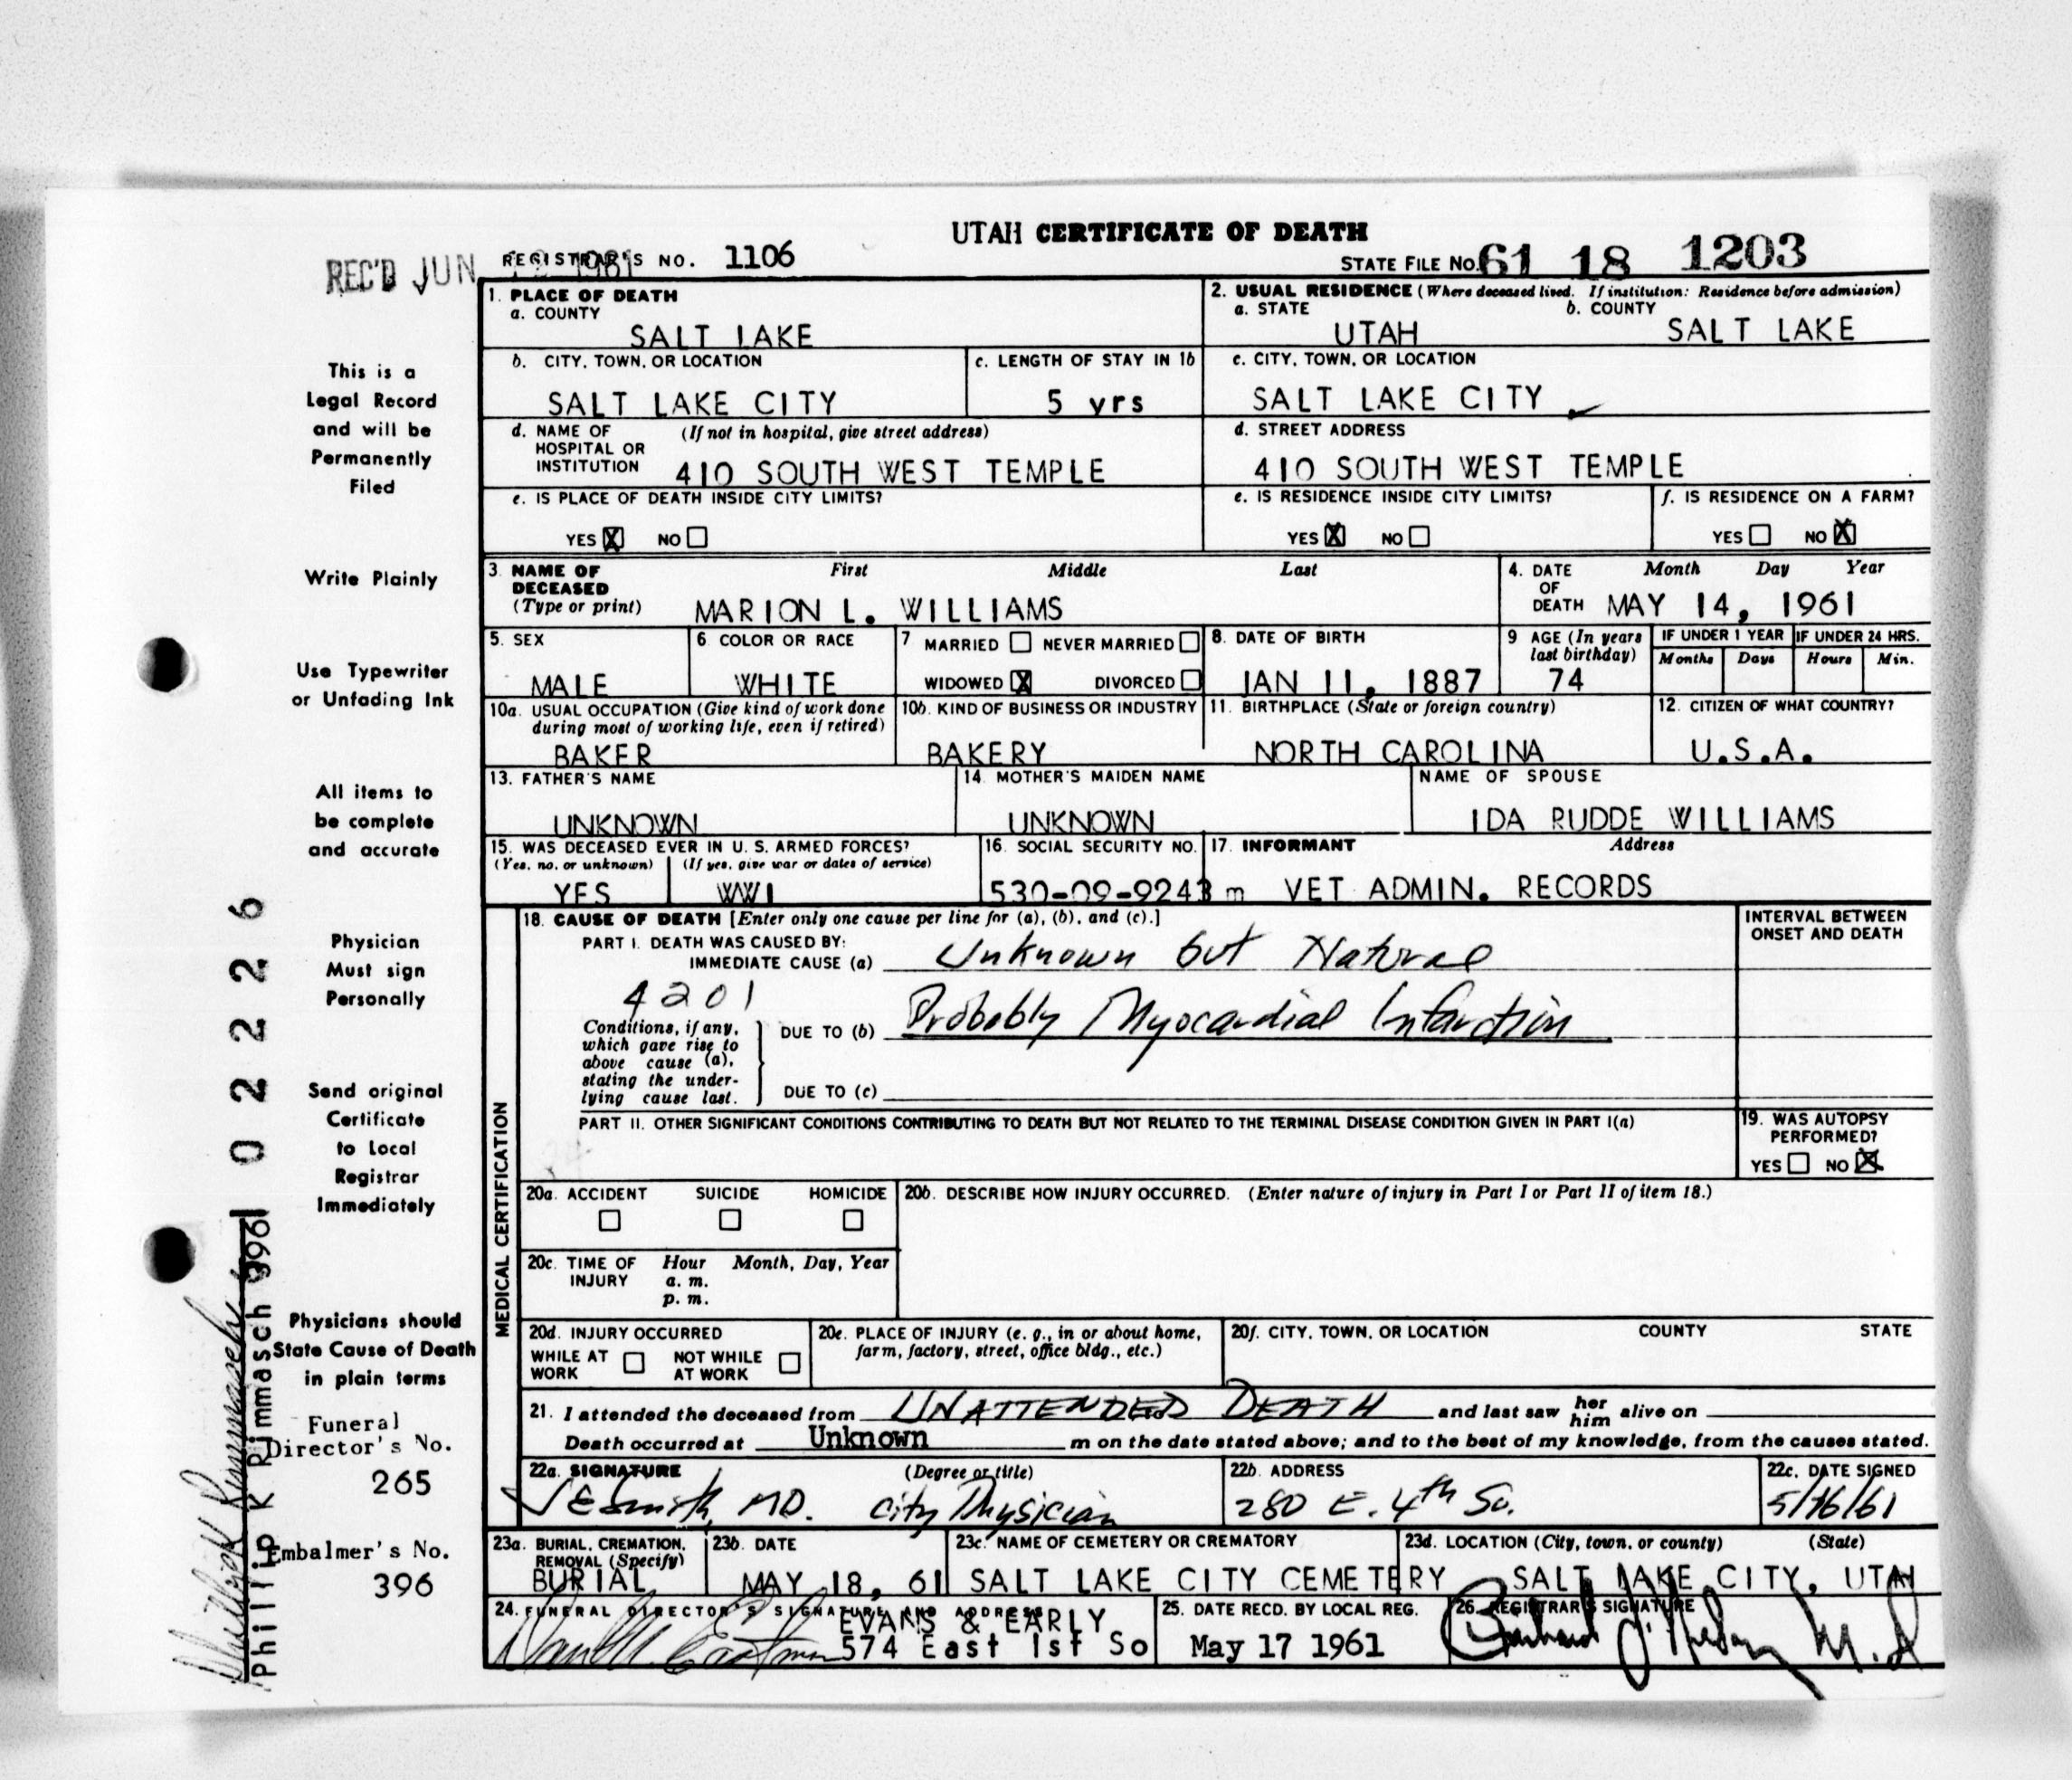 UTAH CERTIFICATE OF DEATH
REC'D JUN 1961
REGISTRAR'S NO. 1106
STATE FILE NO. 61 18 1203
1. PLACE OF DEATH
a. COUNTY
SALT LAKE
2. USUAL RESIDENCE (Where deceased lived. If institution: Residence before admission)
a. STATE b. COUNTY
UTAH SALT LAKE
b. CITY, TOWN, OR LOCATION
SALT LAKE CITY
c. LENGTH OF STAY IN 1b
5 yrs
c. CITY, TOWN, OR LOCATION
SALT LAKE CITY
d. NAME OF HOSPITAL OR INSTITUTION (If not in hospital, give street address)
410 SOUTH WEST TEMPLE
d. STREET ADDRESS
410 SOUTH WEST TEMPLE
e. IS PLACE OF DEATH INSIDE CITY LIMITS?
YES X NO
e. IS RESIDENCE INSIDE CITY LIMITS?
YES X NO
f. IS RESIDENCE ON A FARM?
YES NO X
3. NAME OF DECEASED (Type or print) First Middle Last
MARION L. WILLIAMS
4. DATE OF DEATH Month Day Year
MAY 14, 1961
5. SEX
MALE
6 COLOR OR RACE
WHITE
7 MARRIED NEVER MARRIED
WIDOWED X DIVORCED
8. DATE OF BIRTH
JAN 11, 1887
9 AGE (In years last birthday)
74
IF UNDER 1 YEAR
Months Days
IF UNDER 24 HRS.
Hours Min.
10a. USUAL OCCUPATION (Give kind of work done during most of working life, even if retired)
BAKER
10b. KIND OF BUSINESS OR INDUSTRY
BAKERY
11. BIRTHPLACE (State or foreign country)
NORTH CAROLINA
12. CITIZEN OF WHAT COUNTRY?
U.S.A.
13. FATHER'S NAME
UNKNOWN
14. MOTHER'S MAIDEN NAME
UNKNOWN
NAME OF SPOUSE
IDA RUDDE WILLIAMS
15. WAS DECEASED EVER IN U. S. ARMED FORCES?
(Yes, no, or unknown) (If yes, give war or dates of service)
YES WWI
16. SOCIAL SECURITY NO.
530-09-9243 m
17. INFORMANT Address
VET ADMIN. RECORDS
MEDICAL CERTIFICATION
18. CAUSE OF DEATH [Enter only one cause per line for (a), (b), and (c).]
INTERVAL BETWEEN ONSET AND DEATH
PART I. DEATH WAS CAUSED BY:
IMMEDIATE CAUSE (a) Unknown but Natural
4201
Conditions, if any, which gave rise to above cause (a), stating the underlying cause last.
DUE TO (b) Probably Myocardial Infarction
DUE TO (c)
PART II. OTHER SIGNIFICANT CONDITIONS CONTRIBUTING TO DEATH BUT NOT RELATED TO THE TERMINAL DISEASE CONDITION GIVEN IN PART I(a)
19. WAS AUTOPSY PERFORMED?
YES NO X
20a. ACCIDENT SUICIDE HOMICIDE
20b. DESCRIBE HOW INJURY OCCURRED. (Enter nature of injury in Part I or Part II of item 18.)
20c. TIME OF INJURY Hour Month, Day, Year
a. m.
p. m.
20d. INJURY OCCURRED
WHILE AT WORK NOT WHILE AT WORK
20e. PLACE OF INJURY (e. g., in or about home, farm, factory, street, office bldg., etc.)
20f. CITY, TOWN, OR LOCATION COUNTY STATE
21. I attended the deceased from UNATTENDED DEATH and last saw her him alive on
Death occurred at Unknown m on the date stated above; and to the best of my knowledge, from the causes stated.
22a. SIGNATURE (Degree or title)
J E Smith, MD. City Physician
22b. ADDRESS
280 E. 4th So.
22c. DATE SIGNED
5/16/61
23a. BURIAL, CREMATION, REMOVAL (Specify)
BURIAL
23b. DATE
MAY 18, 61
23c. NAME OF CEMETERY OR CREMATORY
SALT LAKE CITY CEMETERY
23d. LOCATION (City, town, or county) (State)
SALT LAKE CITY, UTAH
24. FUNERAL DIRECTOR'S SIGNATURE AND ADDRESS
EVANS & EARLY
574 East 1st So
25. DATE RECD. BY LOCAL REG.
May 17 1961
26. REGISTRAR'S SIGNATURE
This is a
Legal Record
and will be
Permanently
Filed
Write Plainly
Use Typewriter
or Unfading Ink
All items to
be complete
and accurate
Physician
Must sign
Personally
Send original
Certificate
to Local
Registrar
Immediately
Physicians should
State Cause of Death
in plain terms
Funeral
Director's No.
265
Embalmer's No.
396
022226
Phillip K Rimmasch
Phillip K Rimmasch 396